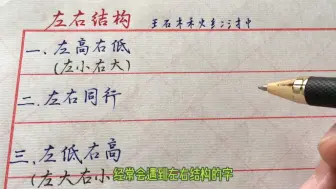 左右结构 王石木禾火纟冫氵扌巾
一、左高右低
(左小右大)
二、左右同行
三、左低右高
(左大右小
经常会遇到左右结构的字